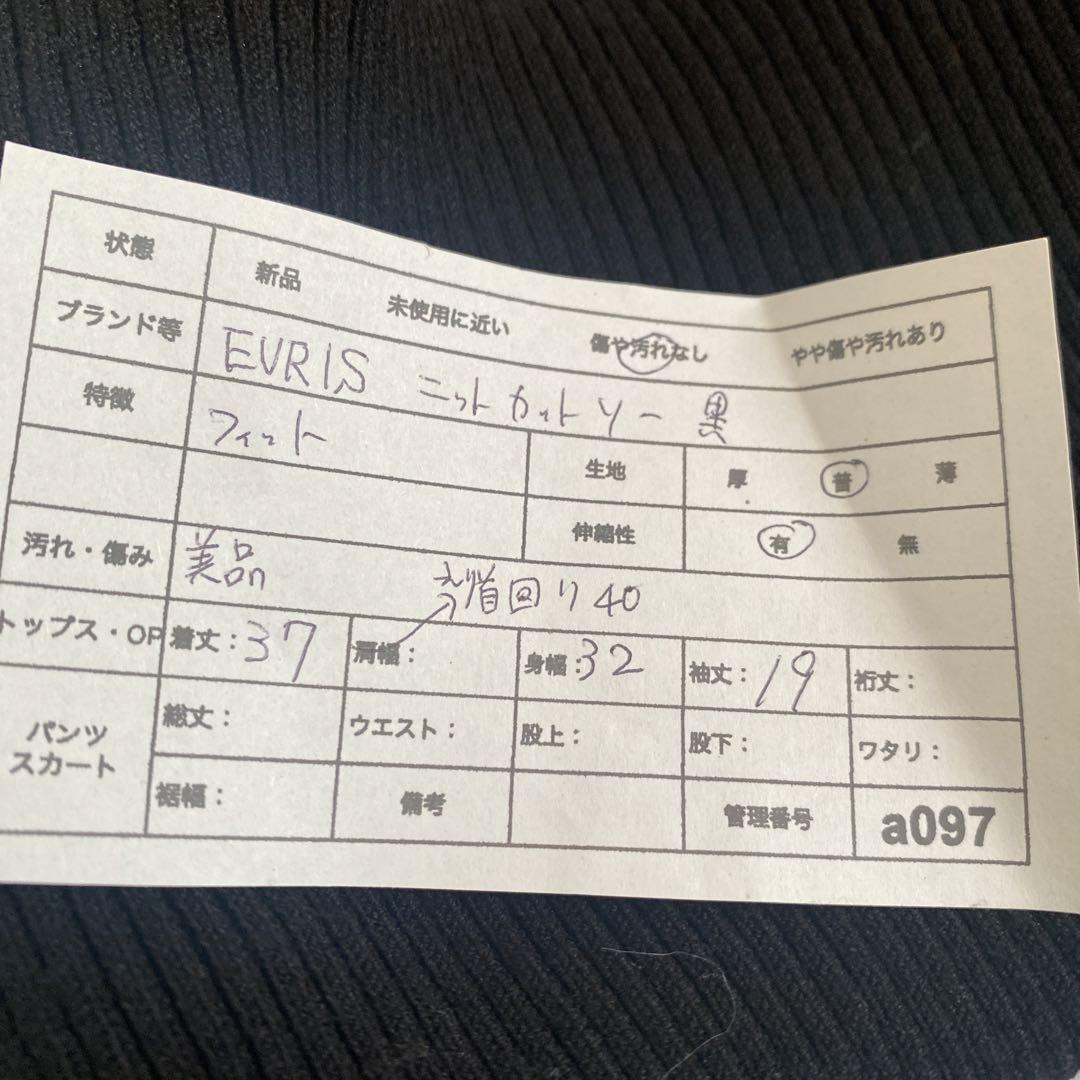 状態 新品 未使用に近い 傷や汚れなし やや傷や汚れあり
ブランド等 EVRIS ニットカットソー 黒
特徴 フィット 生地 厚 普 薄
伸縮性 有 無
汚れ・傷み 美品 首回り 40
トップス・OP 着丈:37 肩幅: 身幅:32 袖丈:19 裄丈:
パンツ スカート 総丈: ウエスト: 股上: 股下: ワタリ:
裾幅: 備考 管理番号 a097